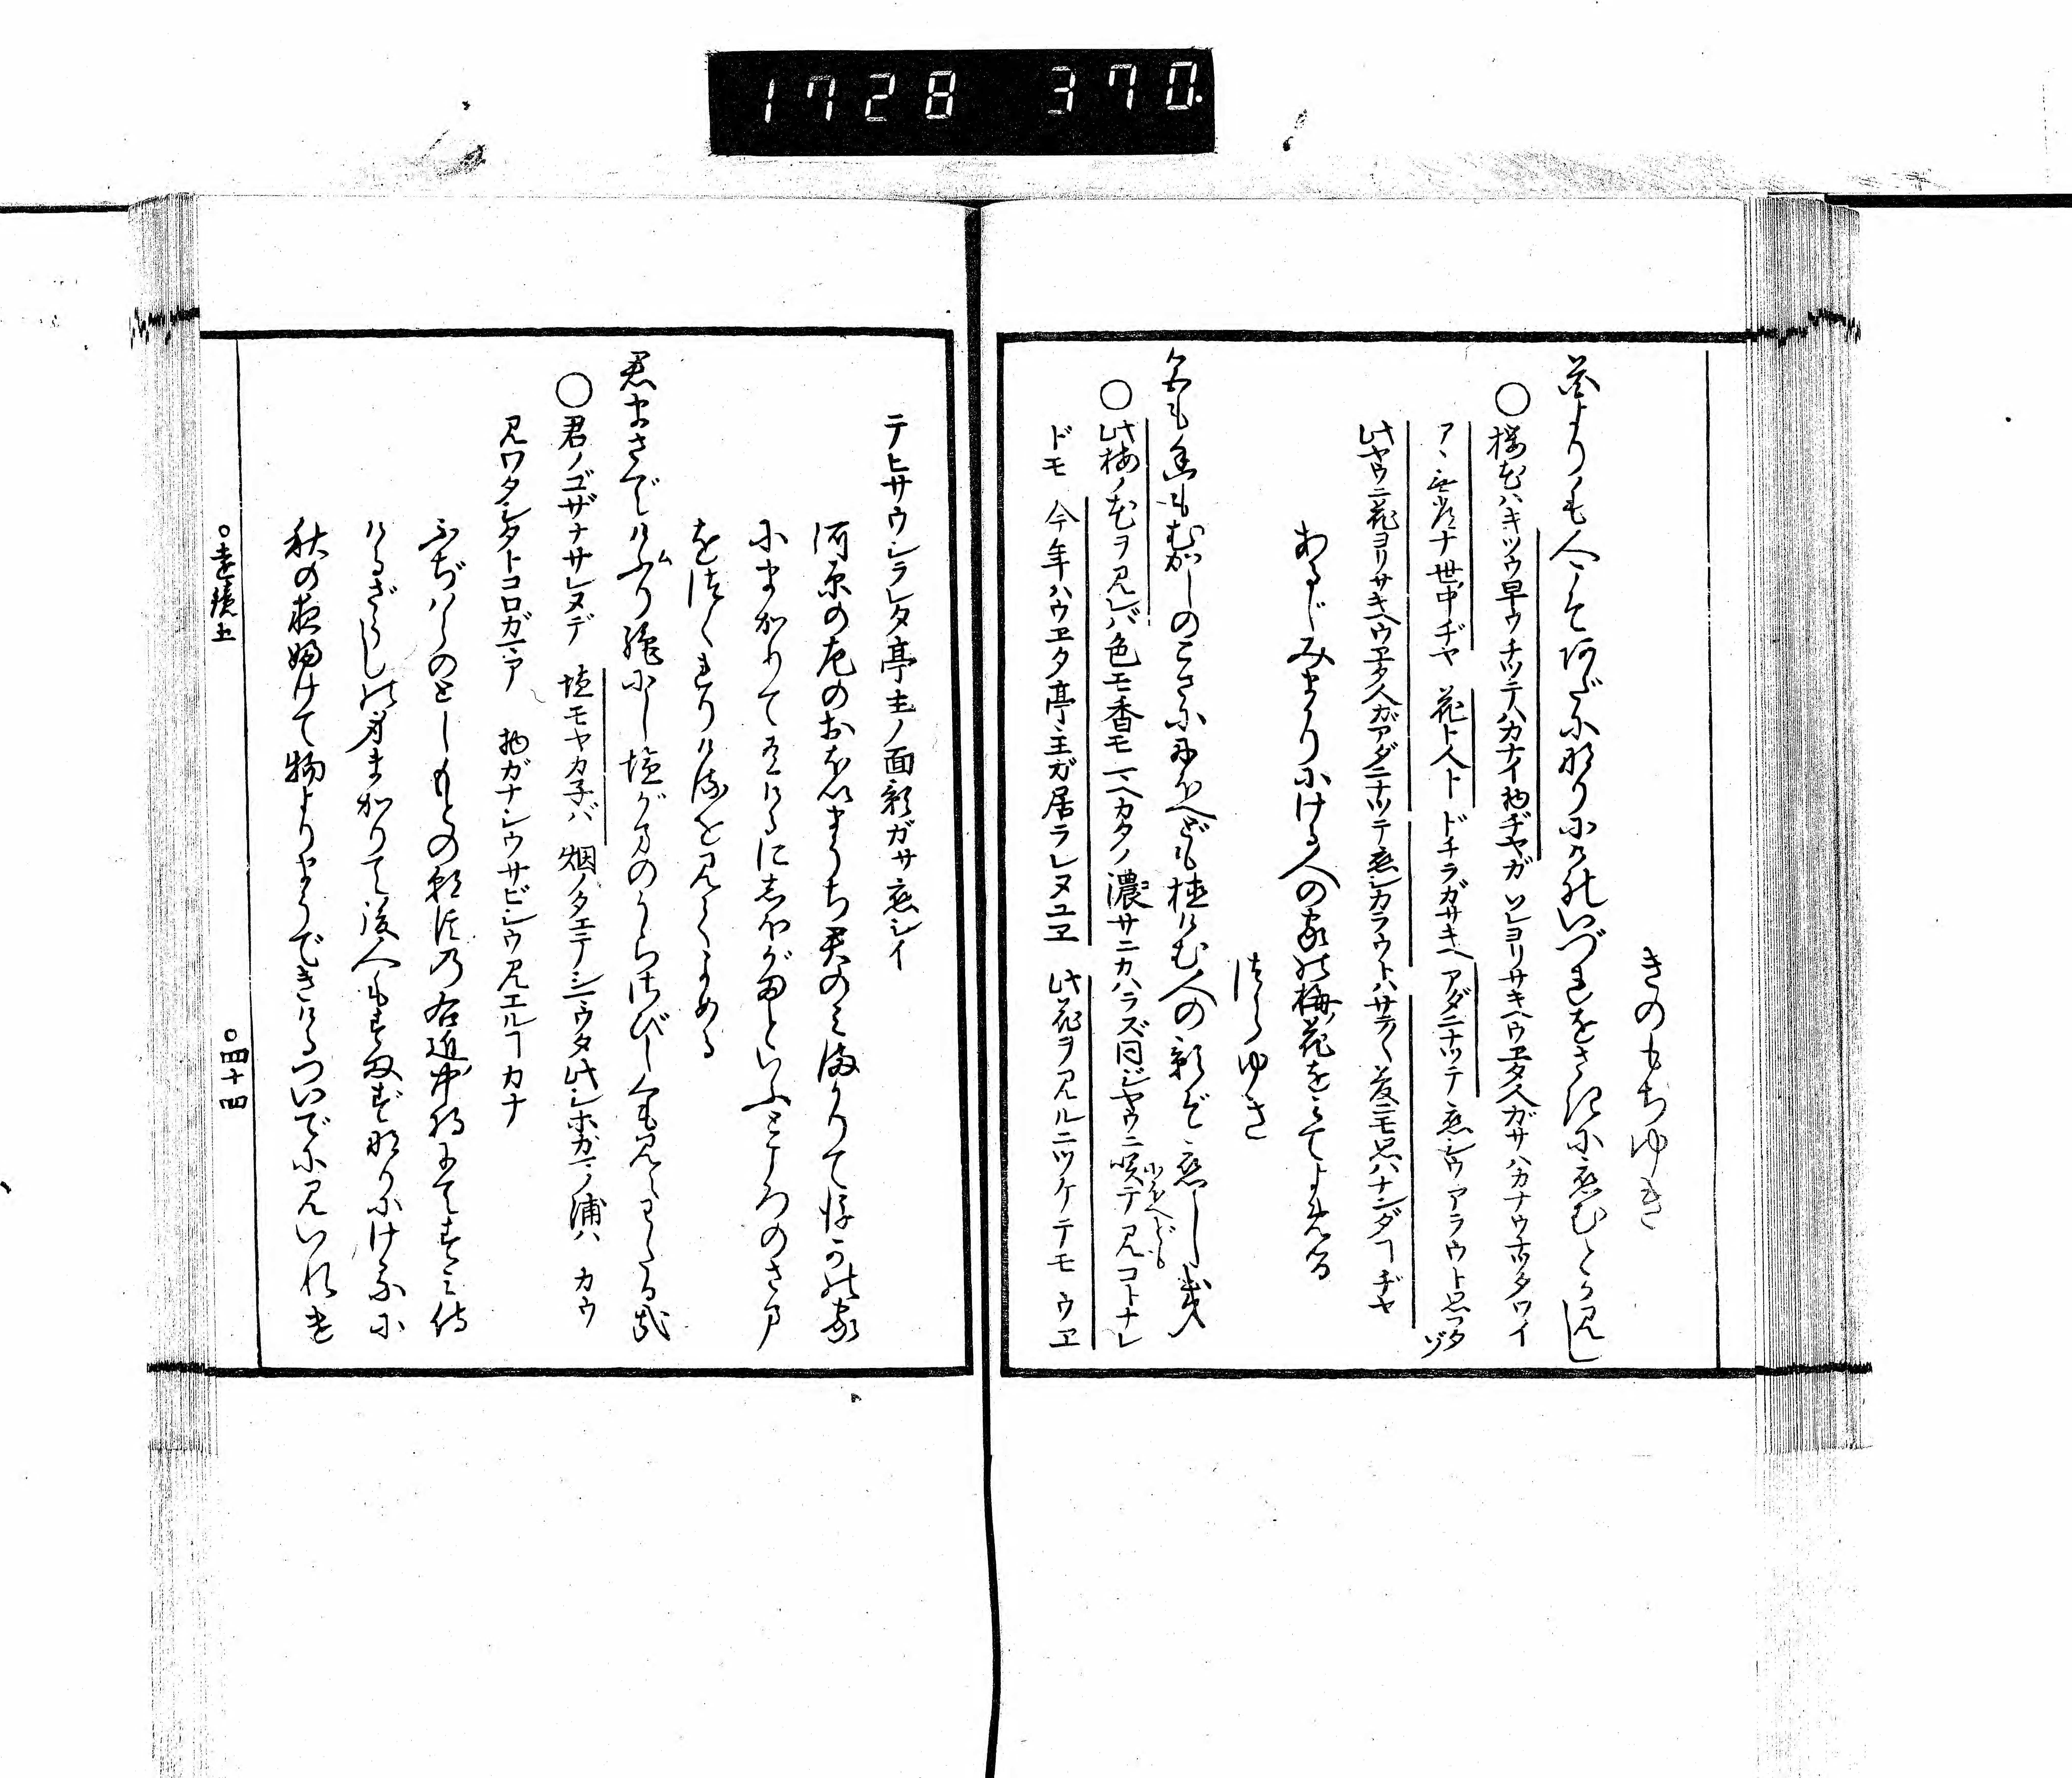 1728 370
きのもちゆき
花よりも人こそあだになりにけれいづれをさきに恋むとか見し
○桜花ハキツウ早ウチツテハカナイ物ヂヤガ ソレヨリサキヘウヱタ人ガサハカナウナツタワイ
アヽ無常ナ世中ヂヤ 花ト人ト ドチラガサキヘアダニナツテ恋シウアラウト思ツタゾ
此ヤウニ花ヨリサキヘウヱタ人ガアダニナツテ恋シカラウトハサラ〳〵夢ニモ思ハナンダヿヂヤ
あるじみまかりにける人の家の梅花を見てよめる
つらゆき
色も香もむかしのこさににほへども植けむ人の影ぞ恋しき
○此梅ノ花ヲ見レバ色モ香モ一ヘカタノ濃サニカハラズ同ジヤウニ咲テにほへども見コトナレ
ドモ 今年ハウヱタ亭主ガ居ラレヌユヱ 此花ヲ見ルニツケテモ ウヱ
テヒサウシラレタ亭主ノ面影ガサ恋シイ
河原の左のおほいまうち君のみまかりて後かの家
にまかりて有けるに しほがまといふところのさま
をつくれりけるを見てよめる
君まさでけふり絶にし塩がまのうらさびしくも見えわたる哉
○君ノゴザナサレヌデ 塩モヤカ子バ 烟ノタエテシマウタ此シホガマノ浦ハ カウ
見ワタシタトコロガマア 物ガナシウサビシウ見エルヿカナ
ふぢはらのとしもとの朝臣乃右近中将にてすみ侍
けるざうしの身まかりて後人もすまずなりにけるに
秋の夜ふけて物よりまうできけるついでに見いれけ
○遠鏡五 ○四十四